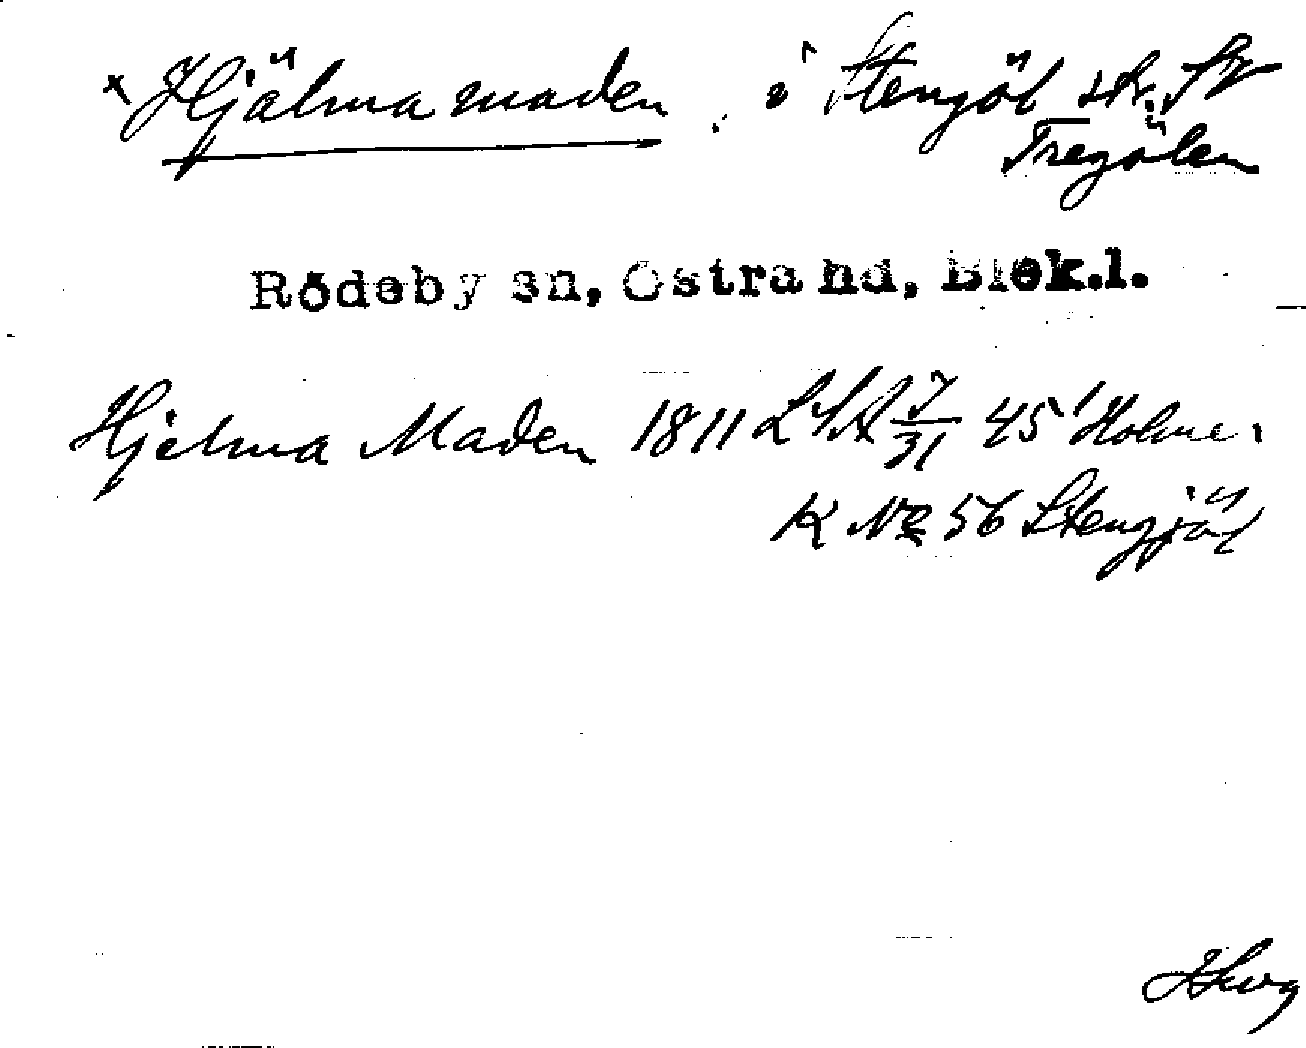 × Hjälmamaden, i Stengöl str. SV
Tregölen
Rödeby sn, Östra hd, Blek.l.
Hjelma Maden 1811 LSA J/31 45 Holme.
K № 56 Stengjöl